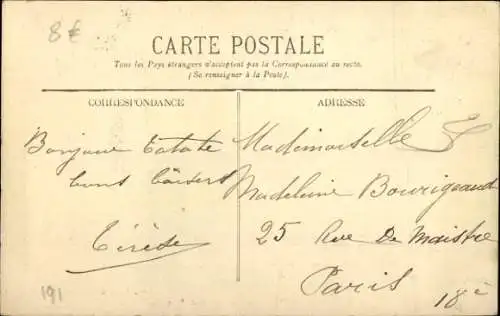 8€
CARTE POSTALE
Tous les Pays étrangers n'acceptent pas la Correspondance au recto.
(Se renseigner à la Poste).
CORRESPONDANCE
Bonjour Tatate
bons baisers
191
ADRESSE
Mademoiselle
Madeleine Bourigeaud
25 Rue De Maistre
Paris 18e